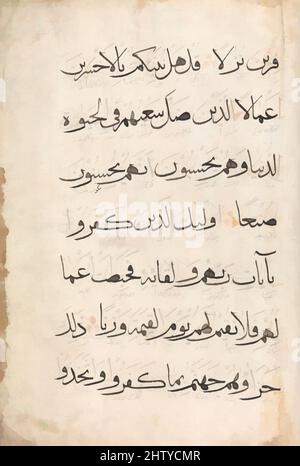 فرين نزلا قل هل ننبئكم بالاخسرين
عملا الذين ضل سعيهم فى الحيوة
الدنيا وهم يحسبون انهم يحسنون
صنعا اولئك الذين كفروا
بايات ربهم ولقائه فحبطت اعما
لهم فلا نقيم لهم يوم القيمة وزنا ذلك
جزاوهم جهنم بما كفروا واتخذوا
alamy
Image ID: 2HTYCMR
www.alamy.com